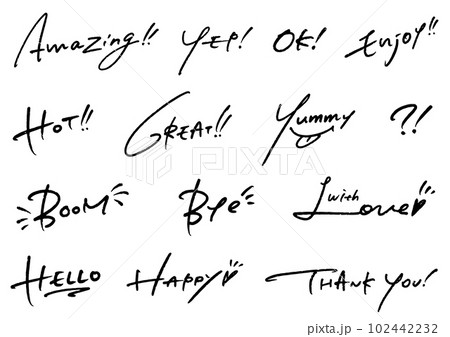 Amazing!! YEP! OK! Enjoy!!
HOT!! GREAT!! Yummy ?!
BOOM Bye with Love
HELLO HAPPY THANK YOU!
PIXTA
pixta.jp - 102442232